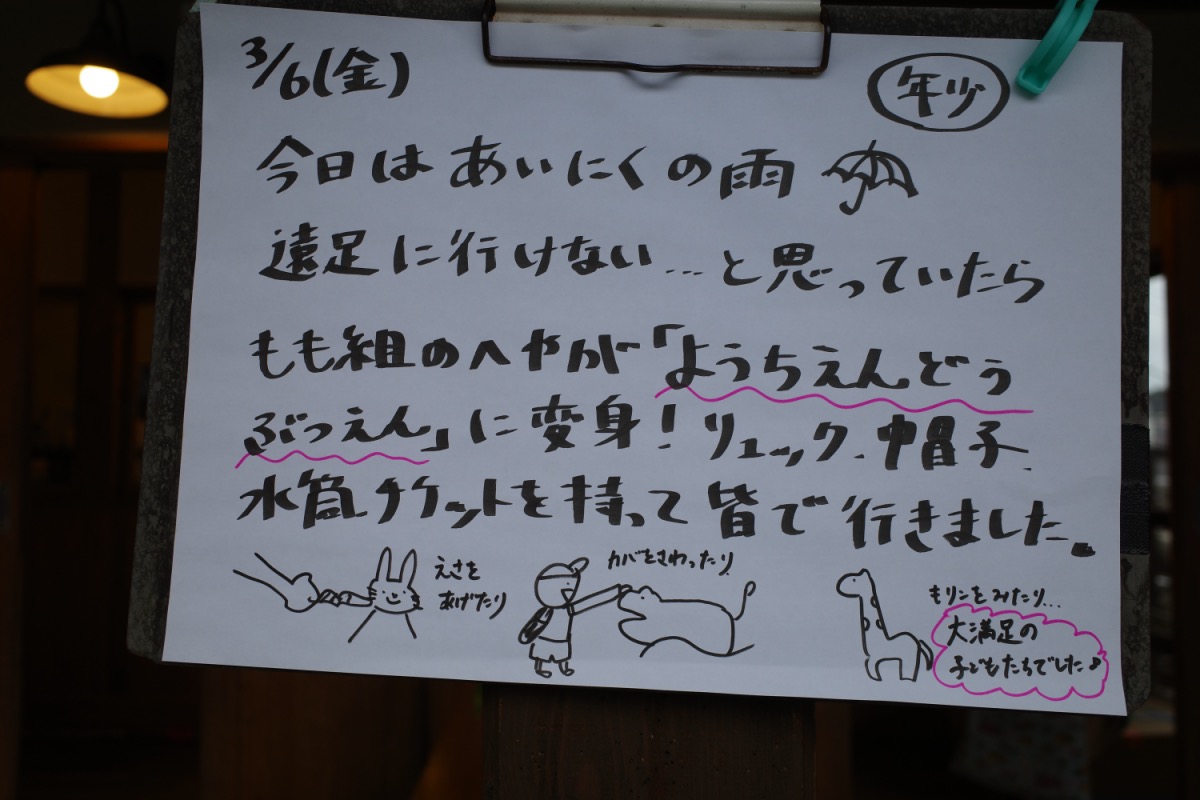 3/6(金)
年少
今日はあいにくの雨
遠足に行けない…と思っていたら
もも組のへやが「ようちえんどう
ぶつえん」に変身！リュック、帽子、
水筒、チケットを持って皆で行きました。
えさを
あげたり
カバをさわったり
キリンをみたり…
大満足の
子どもたちでした♪